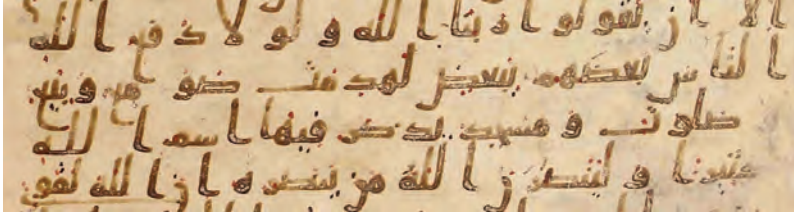 الا ان يقولوا ربنا الله ولولا دفع الله
الناس بعضهم ببعض لهدمت صومع وبيع
صلوت ومسجد يذكر فيها اسم الله
كثيرا ولينصرن الله من ينصره ان الله لقو